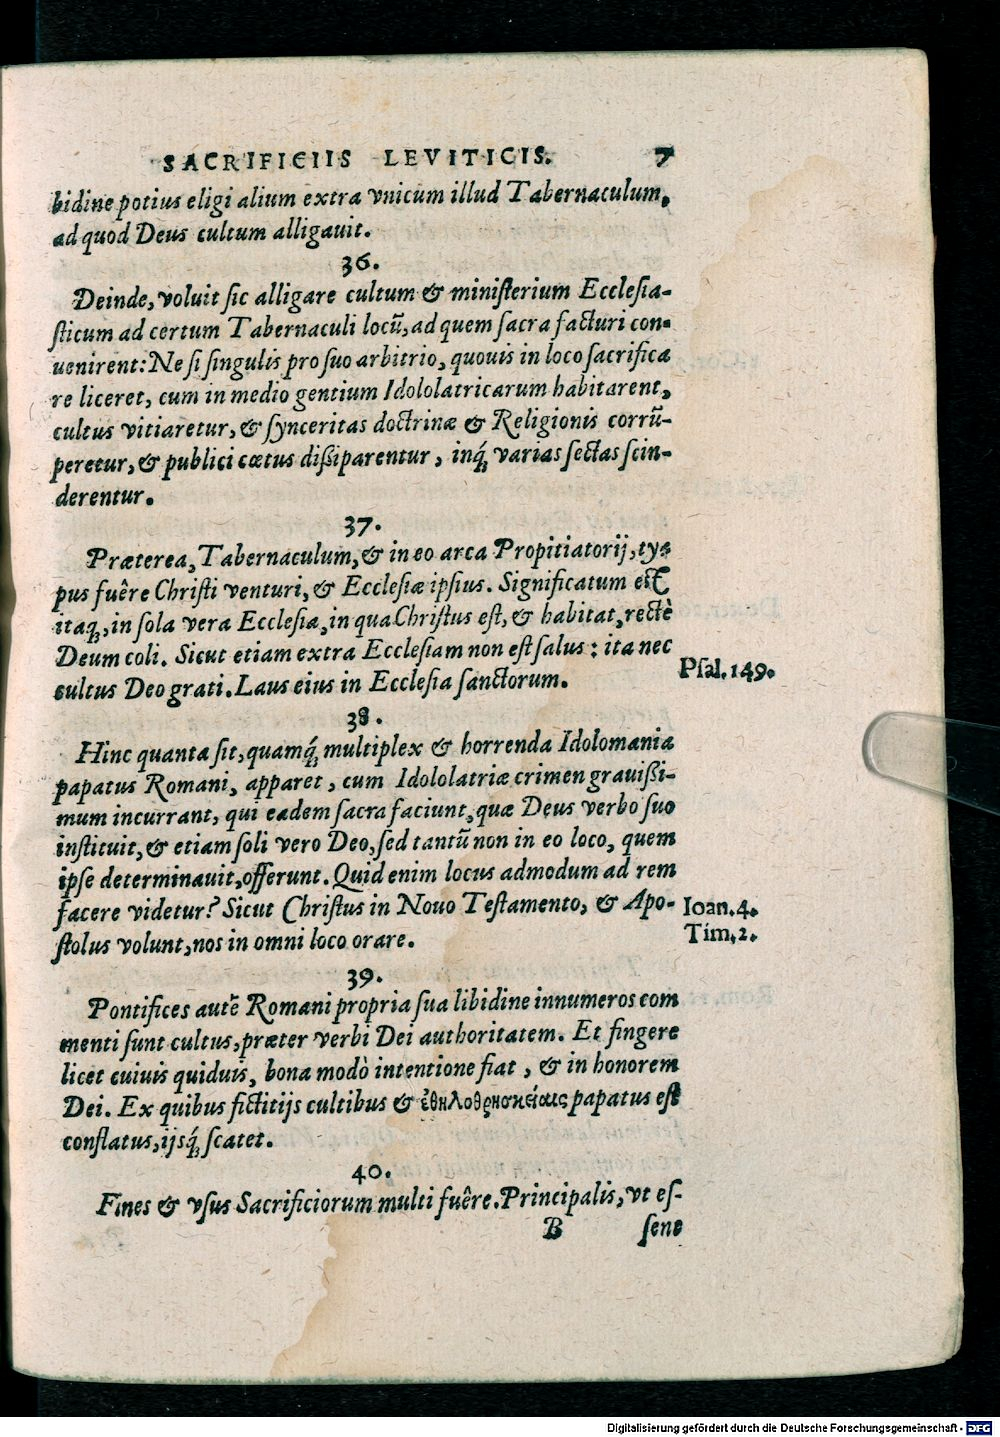 SACRIFICIIS LEVITICIS. 7
bidine potius eligi alium extra vnicum illud Tabernaculum,
ad quod Deus cultum alligauit.
36.
Deinde, voluit sic alligare cultum & ministerium Ecclesia-
sticum ad certum Tabernaculi locũ, ad quem sacra facturi con-
uenirent: Ne si singulis pro suo arbitrio, quouis in loco sacrifica
re liceret, cum in medio gentium Idololatricarum habitarent,
cultus vitiaretur, & synceritas doctrinæ & Religionis corrũ-
peretur, & publici cœtus dissiparentur, inq́; varias sectas scin-
derentur.
37.
Præterea, Tabernaculum, & in eo arca Propitiatorij, ty-
pus fuêre Christi venturi, & Ecclesiæ ipsius. Significatum est
itaq;, in sola vera Ecclesia, in qua Christus est, & habitat, rectè
Deum coli. Sicut etiam extra Ecclesiam non est salus: ita nec
cultus Deo grati. Laus eius in Ecclesia sanctorum.
Psal. 149.
38.
Hinc quanta sit, quamq́; multiplex & horrenda Idolomania
papatus Romani, apparet, cum Idololatriæ crimen grauissi-
mum incurrant, qui eadem sacra faciunt, quæ Deus verbo suo
instituit, & etiam soli vero Deo, sed tantũ non in eo loco, quem
ipse determinauit, offerunt. Quid enim locus admodum ad rem
facere videtur? Sicut Christus in Nouo Testamento, & Apo-
stolus volunt, nos in omni loco orare.
Ioan. 4.
Tim. 2.
39.
Pontifices autẽ Romani propria sua libidine innumeros com
menti sunt cultus, præter verbi Dei authoritatem. Et fingere
licet cuiuis quiduis, bona modò intentione fiat, & in honorem
Dei. Ex quibus fictitijs cultibus & ἐθηλοθρησκείαις papatus est
conflatus, ijsq́; scatet.
40.
Fines & vsus Sacrificiorum multi fuêre. Principalis, vt es-
B sene
Digitalisierung gefördert durch die Deutsche Forschungsgemeinschaft - DFG